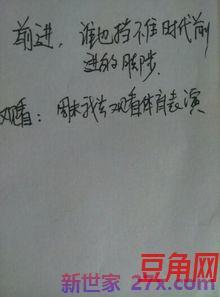 前进，谁也挡不住时代前
进的脚步。
观看：周末我去观看体育表演
豆角网
新世家 27x.com